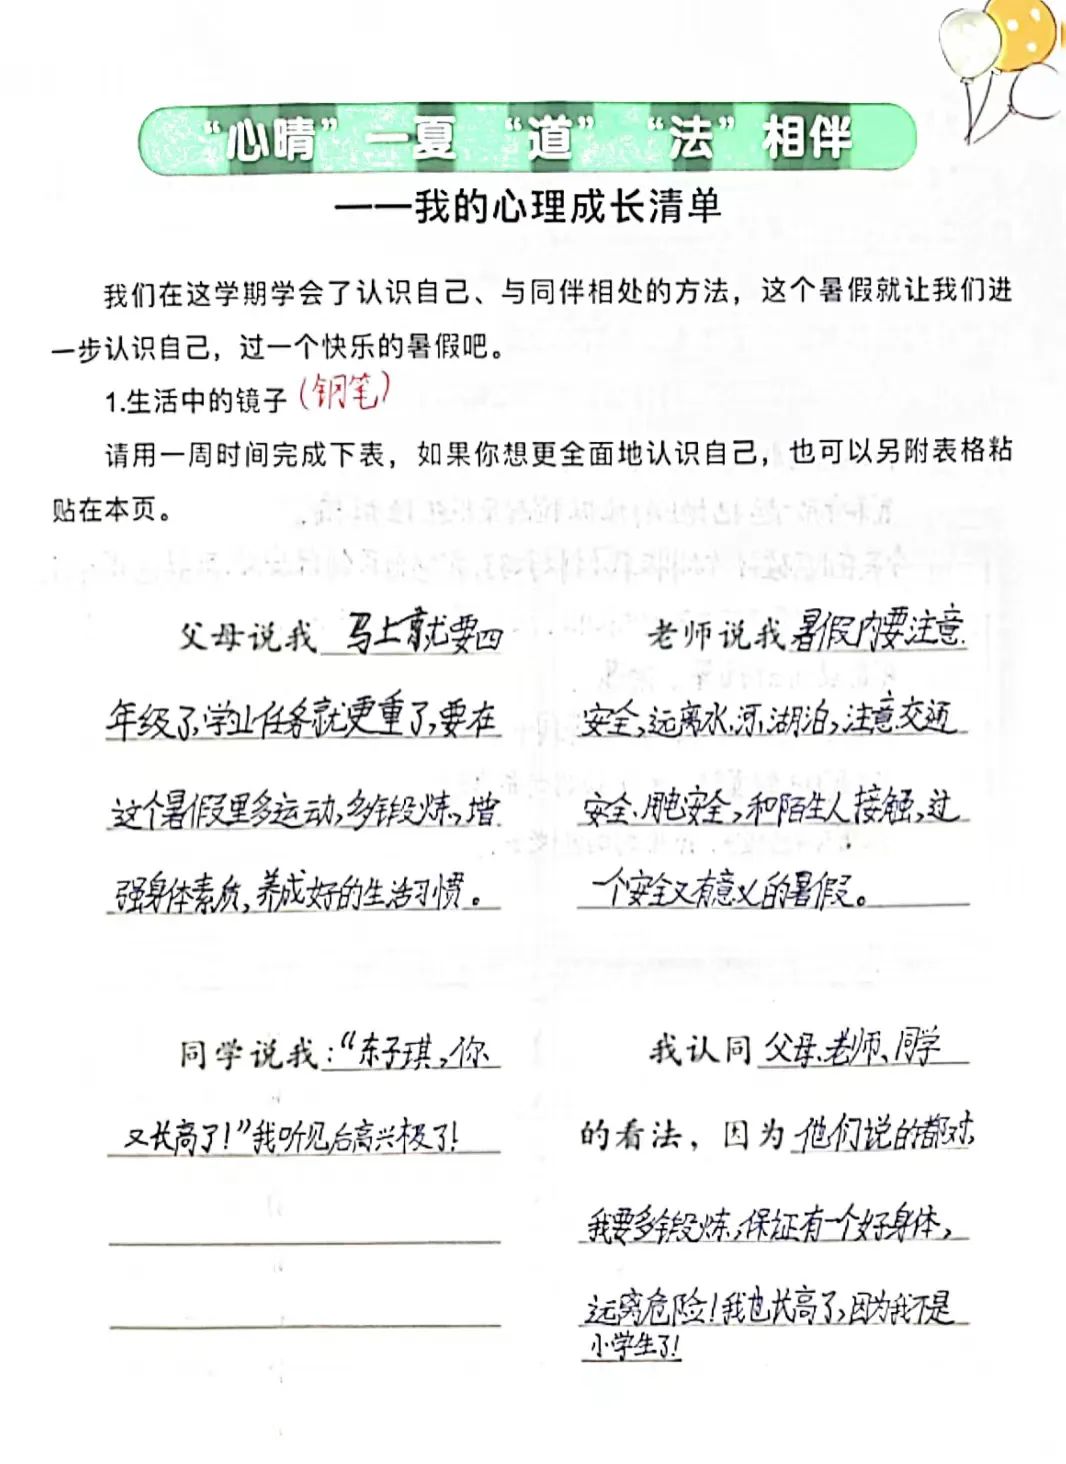 “心晴”一夏 “道” “法”相伴
——我的心理成长清单
我们在这学期学会了认识自己、与同伴相处的方法，这个暑假就让我们进
一步认识自己，过一个快乐的暑假吧。
1.生活中的镜子(钢笔)
请用一周时间完成下表，如果你想更全面地认识自己，也可以另附表格粘
贴在本页。
父母说我 马上就要四
年级了,学业任务就更重了,要在
这个暑假里多运动,多锻炼,增
强身体素质,养成好的生活习惯。
老师说我暑假内要注意
安全,远离水、河、湖泊,注意交通
安全、用电安全,和陌生人接触,过
一个安全又有意义的暑假。
同学说我:“东子琪,你
又长高了!”我听见后高兴极了!
我认同 父母、老师、同学
的看法，因为 他们说的都对,
我要多锻炼,保证有一个好身体,
远离危险!我也长高了,因为我不是
小学生了!